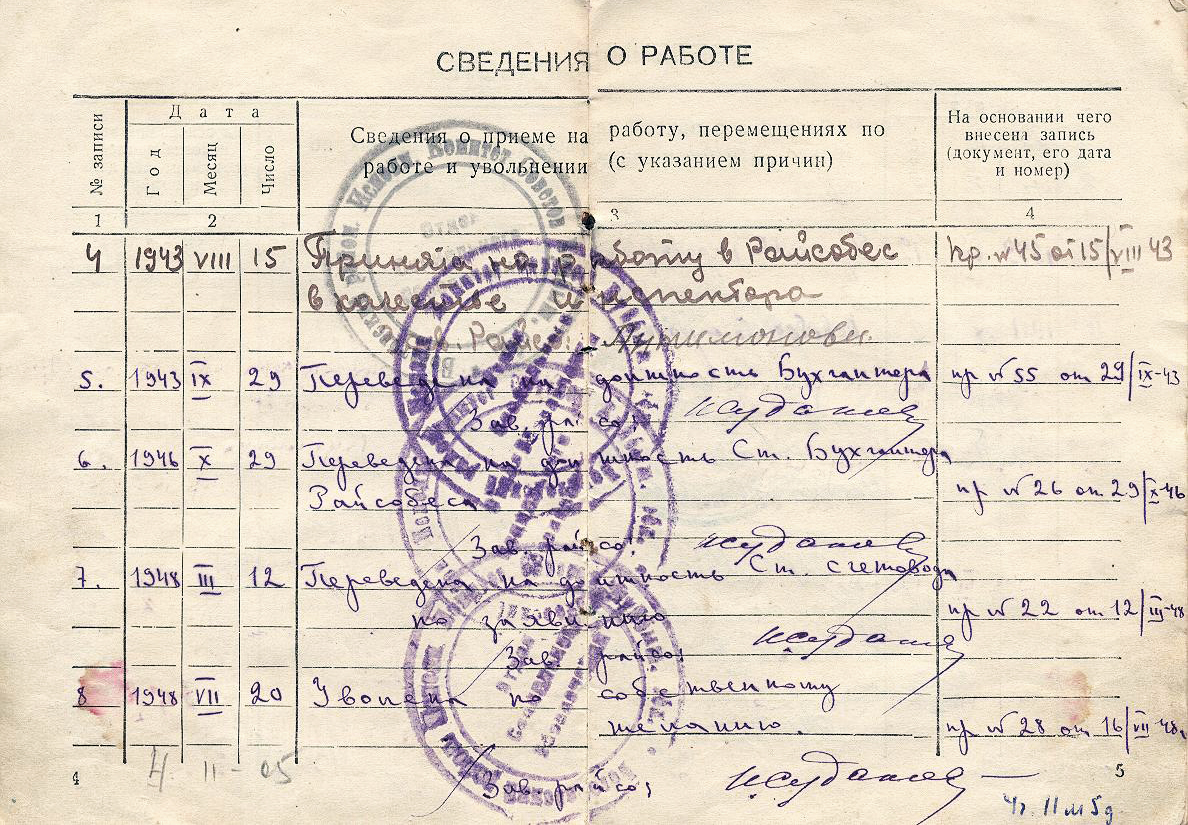 СВЕДЕНИЯ О РАБОТЕ
№ записи
Дата
Год
Месяц
Число
Сведения о приеме на работу, перемещениях по
работе и увольнении (с указанием причин)
На основании чего
внесена запись
(документ, его дата
и номер)
1 2 3 4
4 1943 VIII 15 Принята на работу в Райсобес пр. №45 от 15/VIII 43
в качестве инспектора
5. 1943 IX 29 Переведена на должность Бухгалтера пр №55 от 29/IX-43
Зав. райсо:
6. 1946 X 29 Переведена на должность Ст. Бухгалтера
Райсобеса пр №26 от 29/X-46
Зав. райсо:
7. 1948 III 12 Переведена на должность Ст. счетовода
по заявлению пр №22 от 12/III-48
Зав. райсо:
8 1948 VII 20 Уволена по собственному
желанию. пр №28 от 16/VII-48г
4 5
Зав. райсо:
4 г. 11 м 5 д.